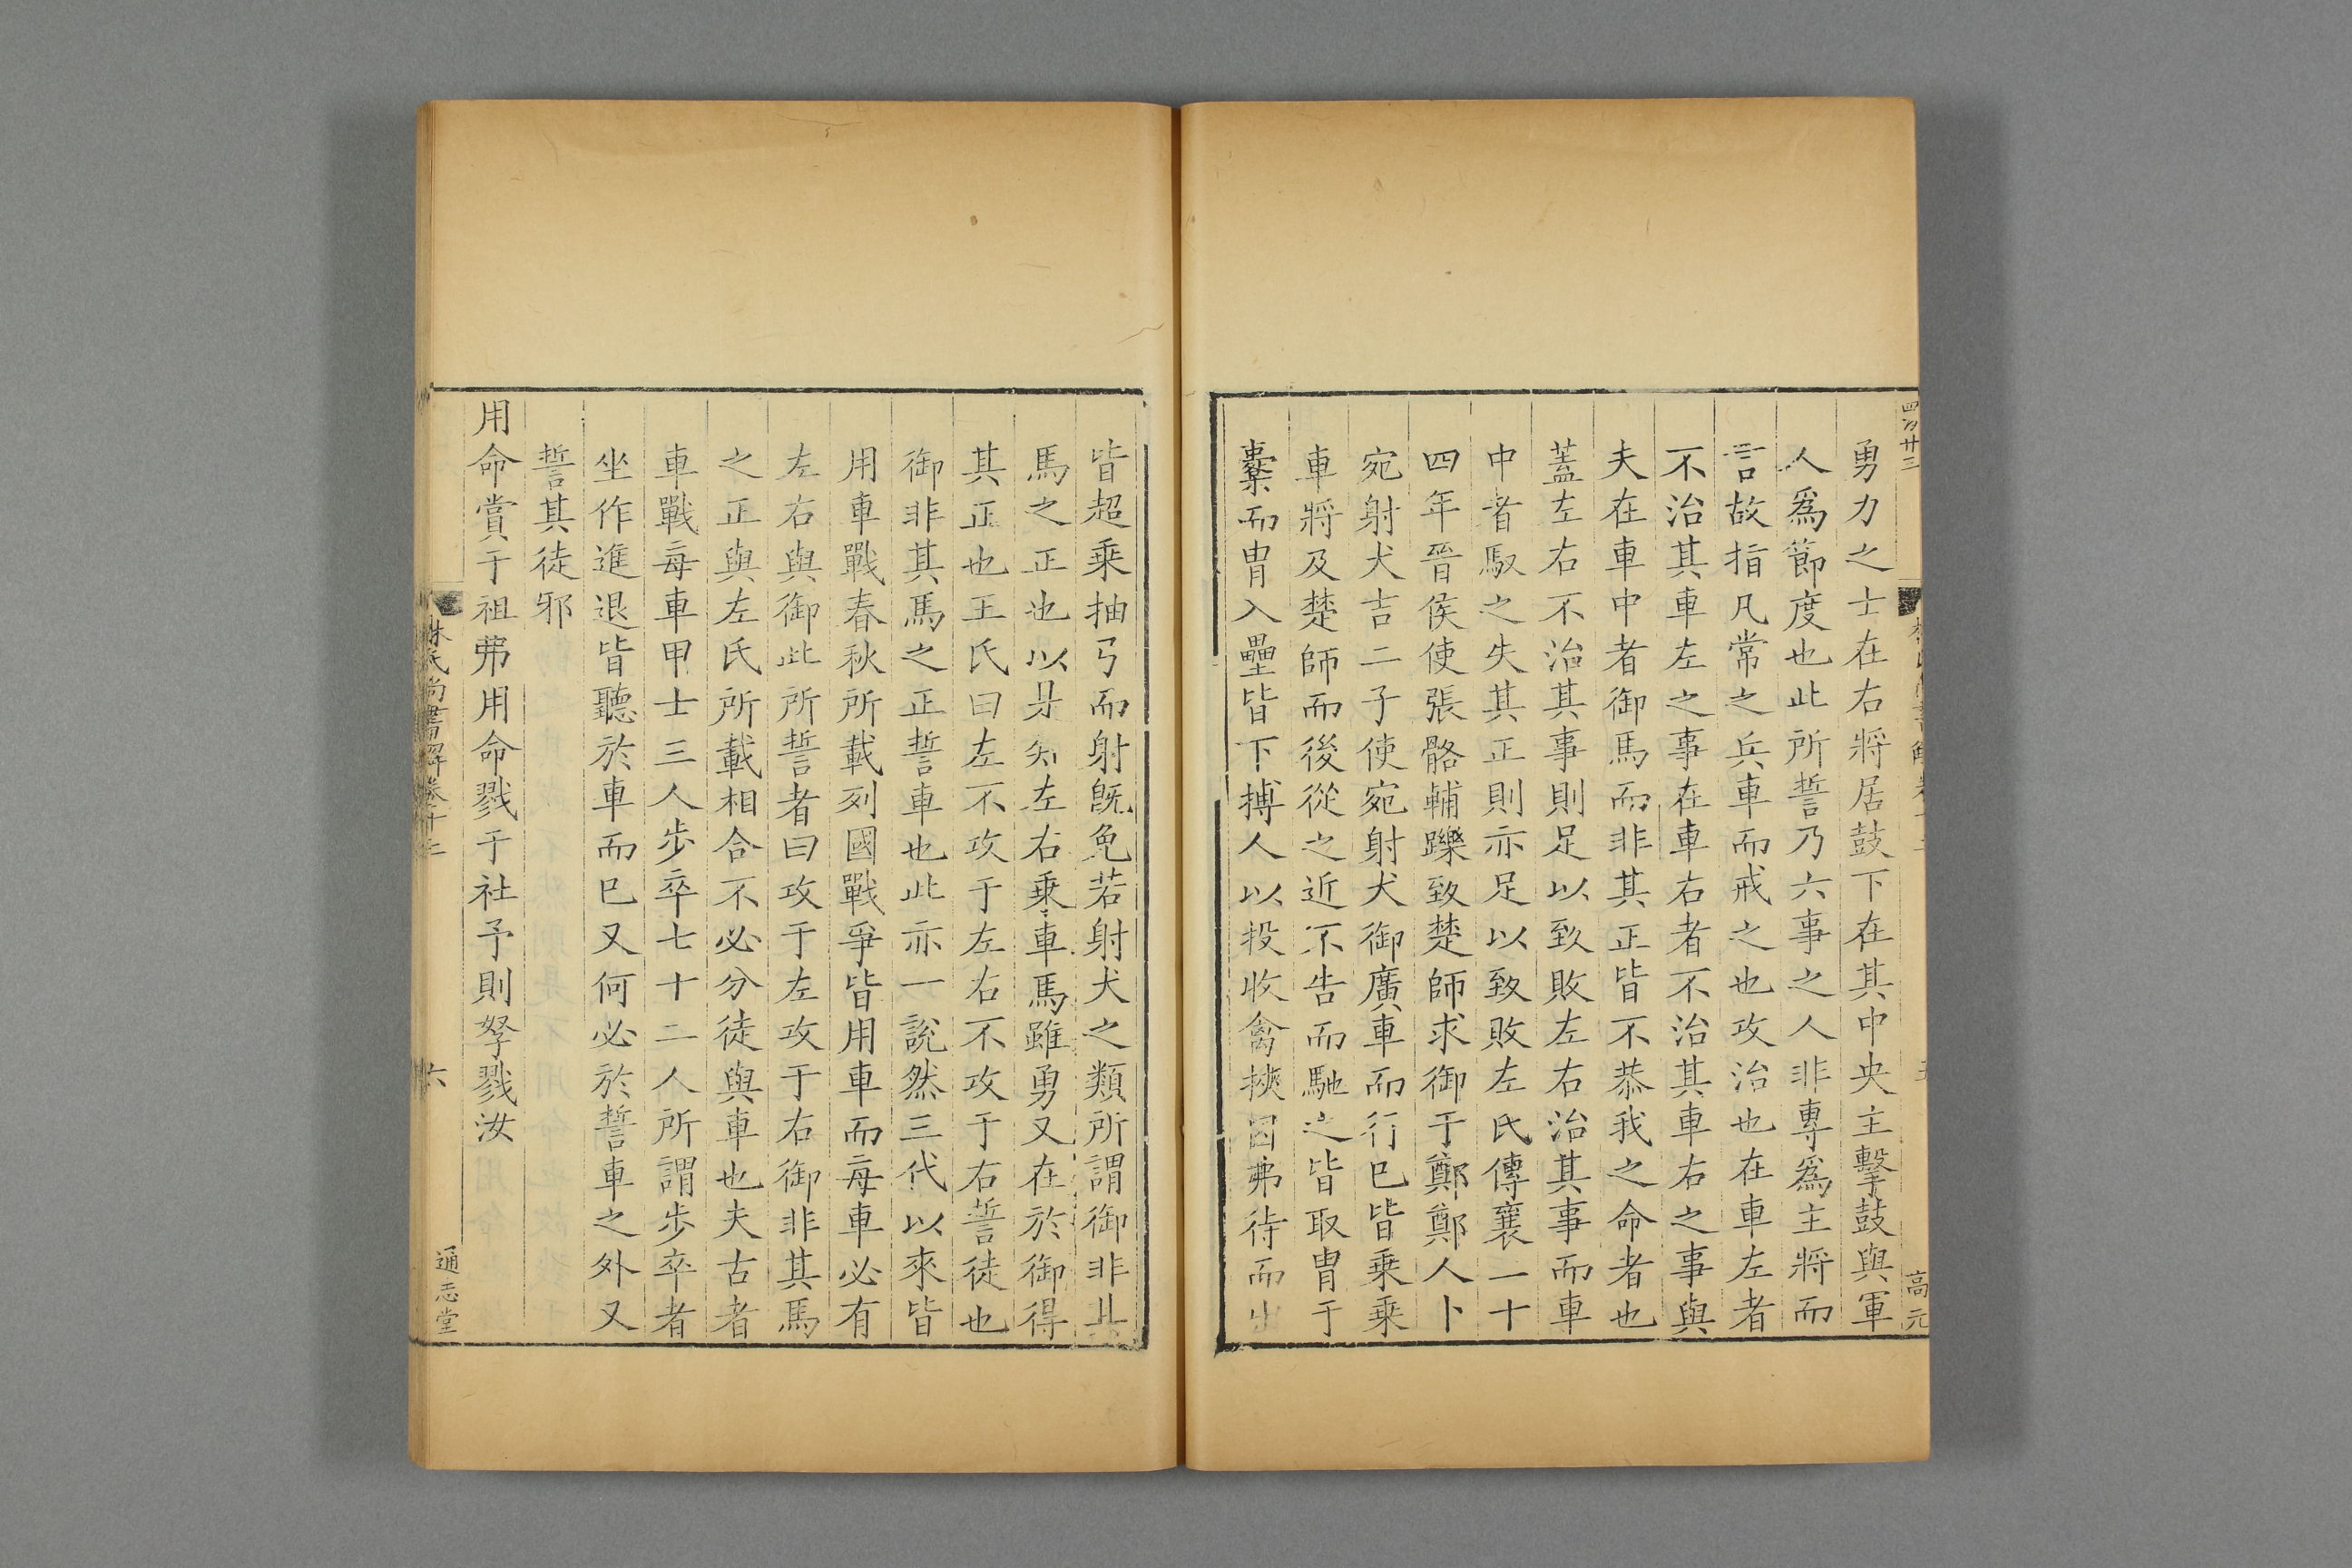 四百廿三
勇力之士在右將居鼓下在其中央主擊鼓與軍
人爲節度也此所誓乃六事之人非專爲主將而
言故指凡常之兵車而戒之也攻治也在車左者
不治其車左之事在車右者不治其車右之事與
夫在車中者御馬而非其正皆不恭我之命者也
蓋左右不治其事則足以致敗左右治其事而車
中者馭之失其正則亦足以致敗左氏傳襄二十
四年晉侯使張骼輔躒致楚師求御于鄭鄭人卜
宛射犬吉二子使宛射犬御廣車而行已皆乗乗
車將及楚師而後從之近不告而馳之皆取冑于
櫜而冑入壘皆下搏人以投收禽挾囚弗待而出
高元
皆超乗抽弓而射旣免若射犬之類所謂御非其
馬之正也以是知左右乗車馬雖勇又在於御得
其正也王氏曰左不攻于左右不攻于右誓徒也
御非其馬之正誓車也此亦一說然三代以來皆
用車戰春秋所載列國戰爭皆用車而每車必有
左右與御此所誓者曰攻于左攻于右御非其馬
之正與左氏所載相合不必分徒與車也夫古者
車戰每車甲士三人步卒七十二人所謂步卒者
坐作進退皆聽於車而已又何必於誓車之外又
誓其徒邪
用命賞于祖弗用命戮于社予則孥戮汝
林氏尚書解卷十二
六
通志堂